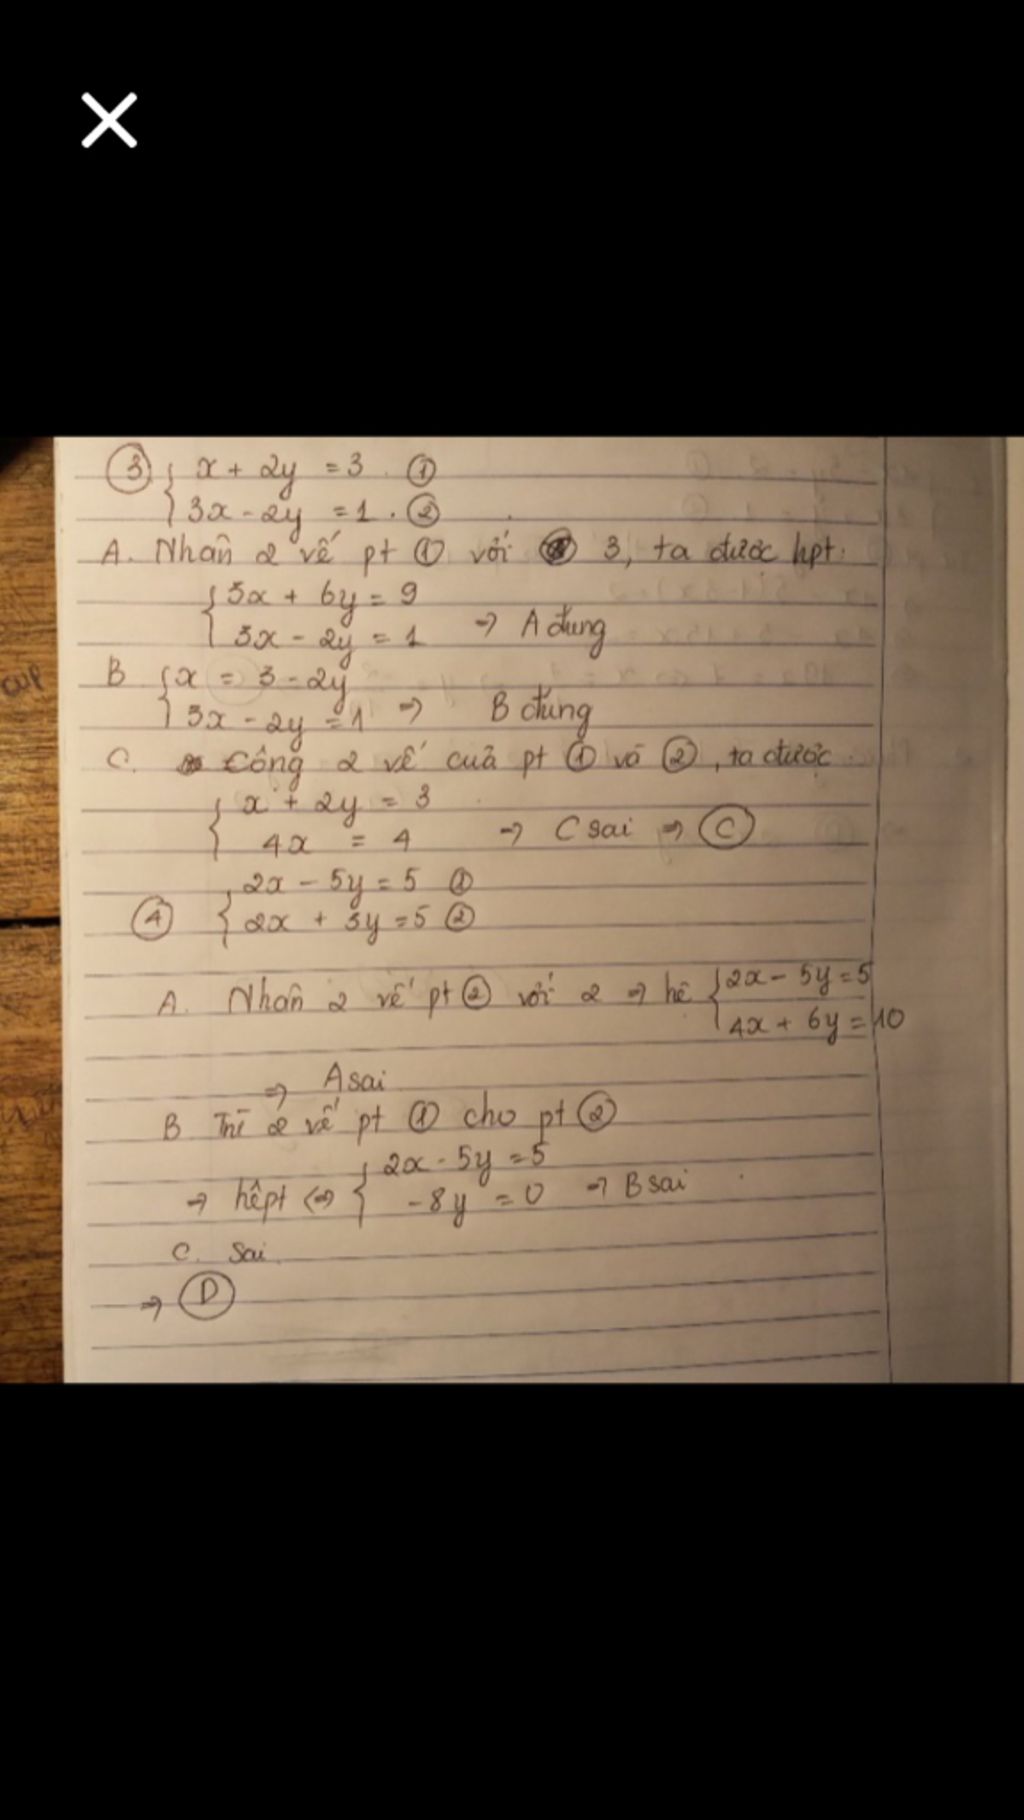 ③ { x + 2y = 3 ①
3x - 2y = 1 . ②
A. Nhân 2 vế pt ① với 3, ta được hpt.
{ 3x + 6y = 9
3x - 2y = 1 → A đúng
B { x = 3 - 2y
3x - 2y = 1 → B đúng
C. Công 2 vế của pt ① và ②, ta được
{ x + 2y = 3
4x = 4 → C sai ⇒ Ⓒ
2x - 5y = 5 ①
④ { 2x + 3y = 5 ②
A. Nhân 2 vế pt ② với 2 → hê { 2x - 5y = 5
4x + 6y = 10
⇒ A sai
B Trừ 2 vế pt ① cho pt ②
→ hêpt ⇔ { 2x - 5y = 5
- 8y = 0 → B sai
C. Sai.
⇒ Ⓓ